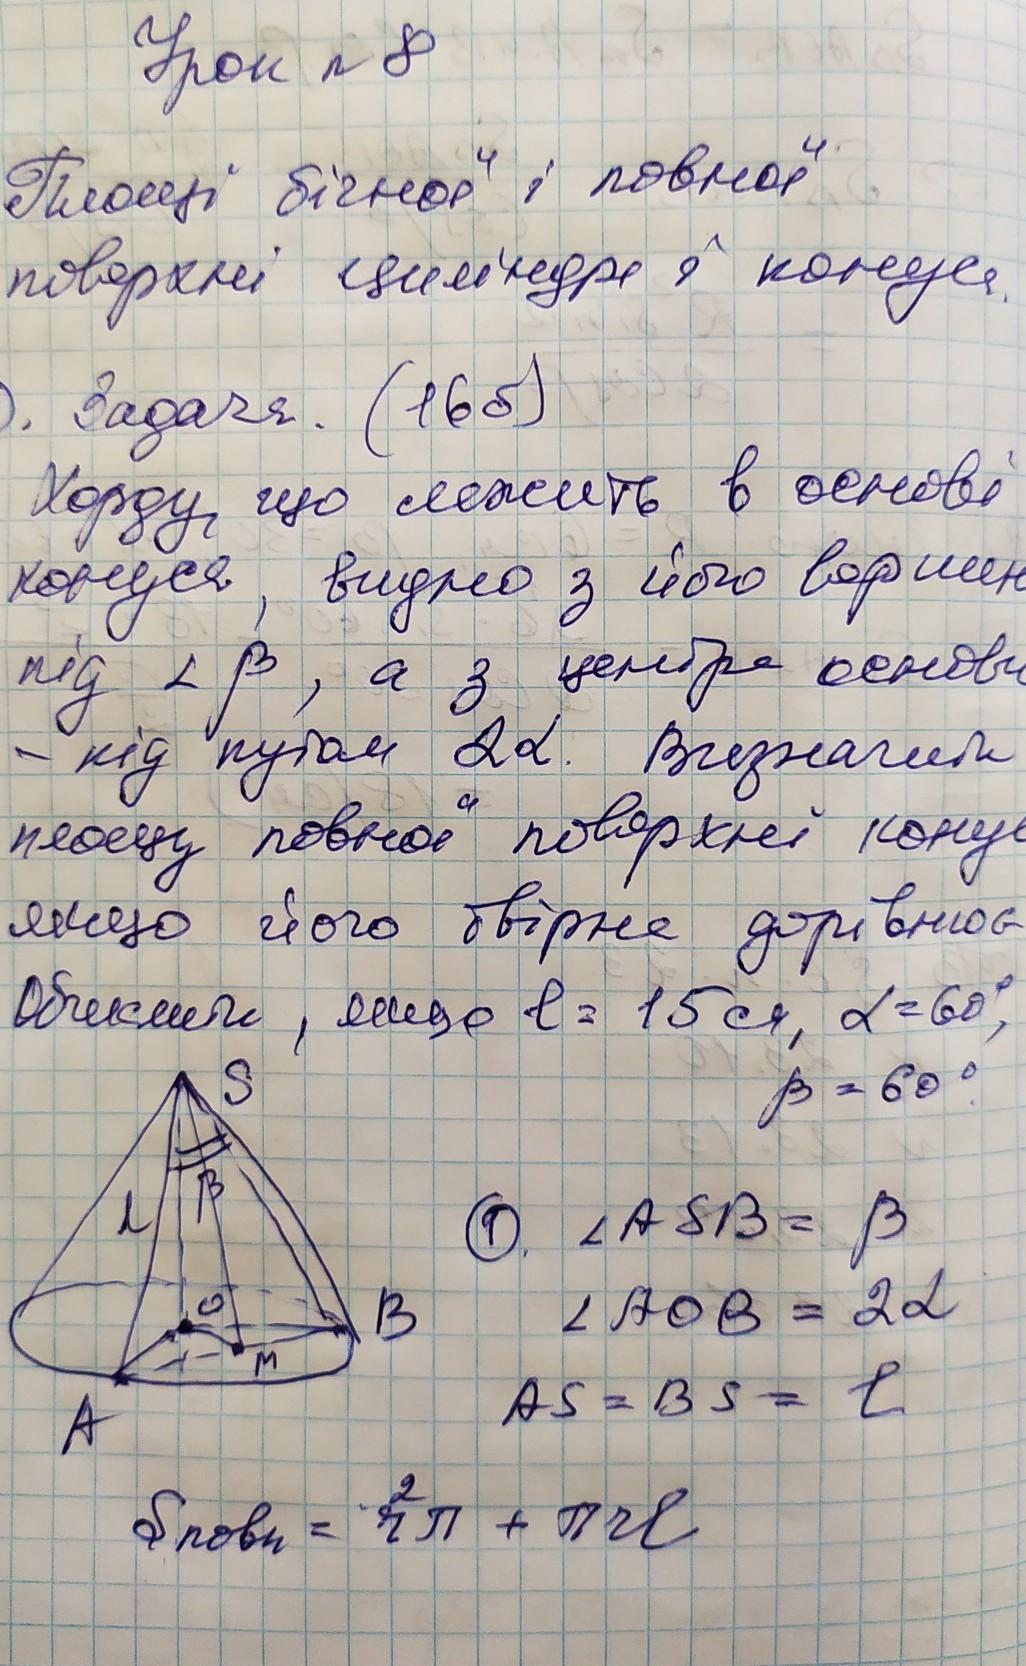 Урок n 8
Площі бічної і повної
поверхні циліндра і конуса.
). Задача. (16б)
Хорду, що лежить в основі
конуса, видно з його вершин
під ∠ β, а з центра основи
– під кутом 2α. Визначити
площу повної поверхні конус
якщо його твірна дорівнює
Обчислити, якщо l = 15 см, α = 60°,
β = 60°.
S
β
L
O
B
M
A
①. ∠ASB = β
∠AOB = 2α
AS = BS = l
Sповн = r²π + πrl